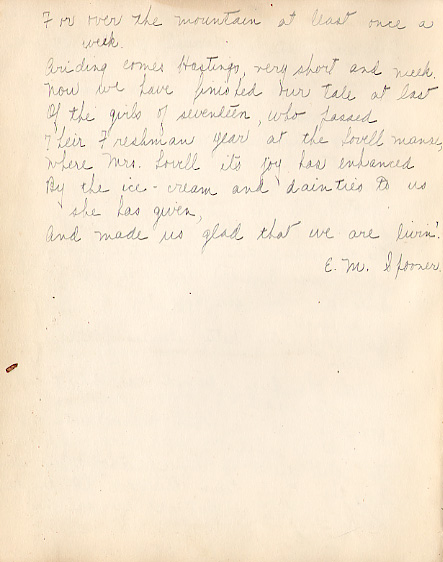 For over the mountain at least once a
week.
Ariding comes Hastings, very short and meek.
Now we have finished our tale at last
Of the girls of seventeen, who passed
Their Freshman year at the Lovell manse,
Where Mrs. Lovell its joy has enhanced
By the ice-cream and dainties to us
she has given,
And made us glad that we are livin'.
E. M. Spooner.